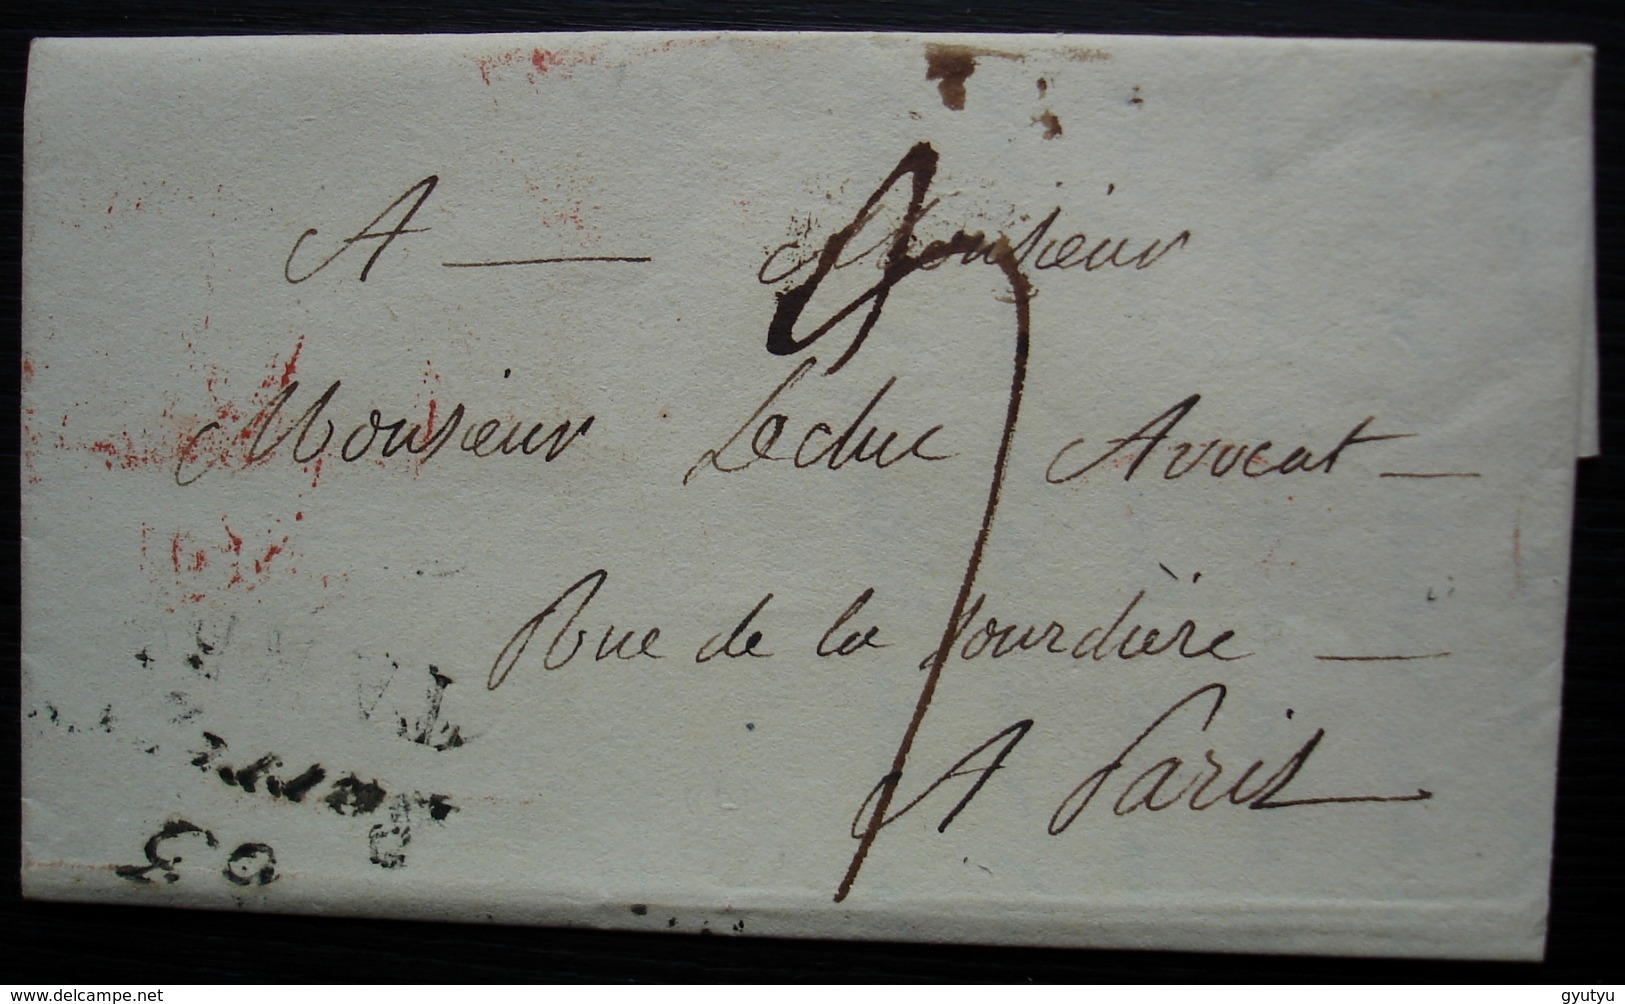 A — Monsieur
Monsieur Leduc Avocat —
Rue de la Sourdière —
A Paris
delcampe.net
gyutyu